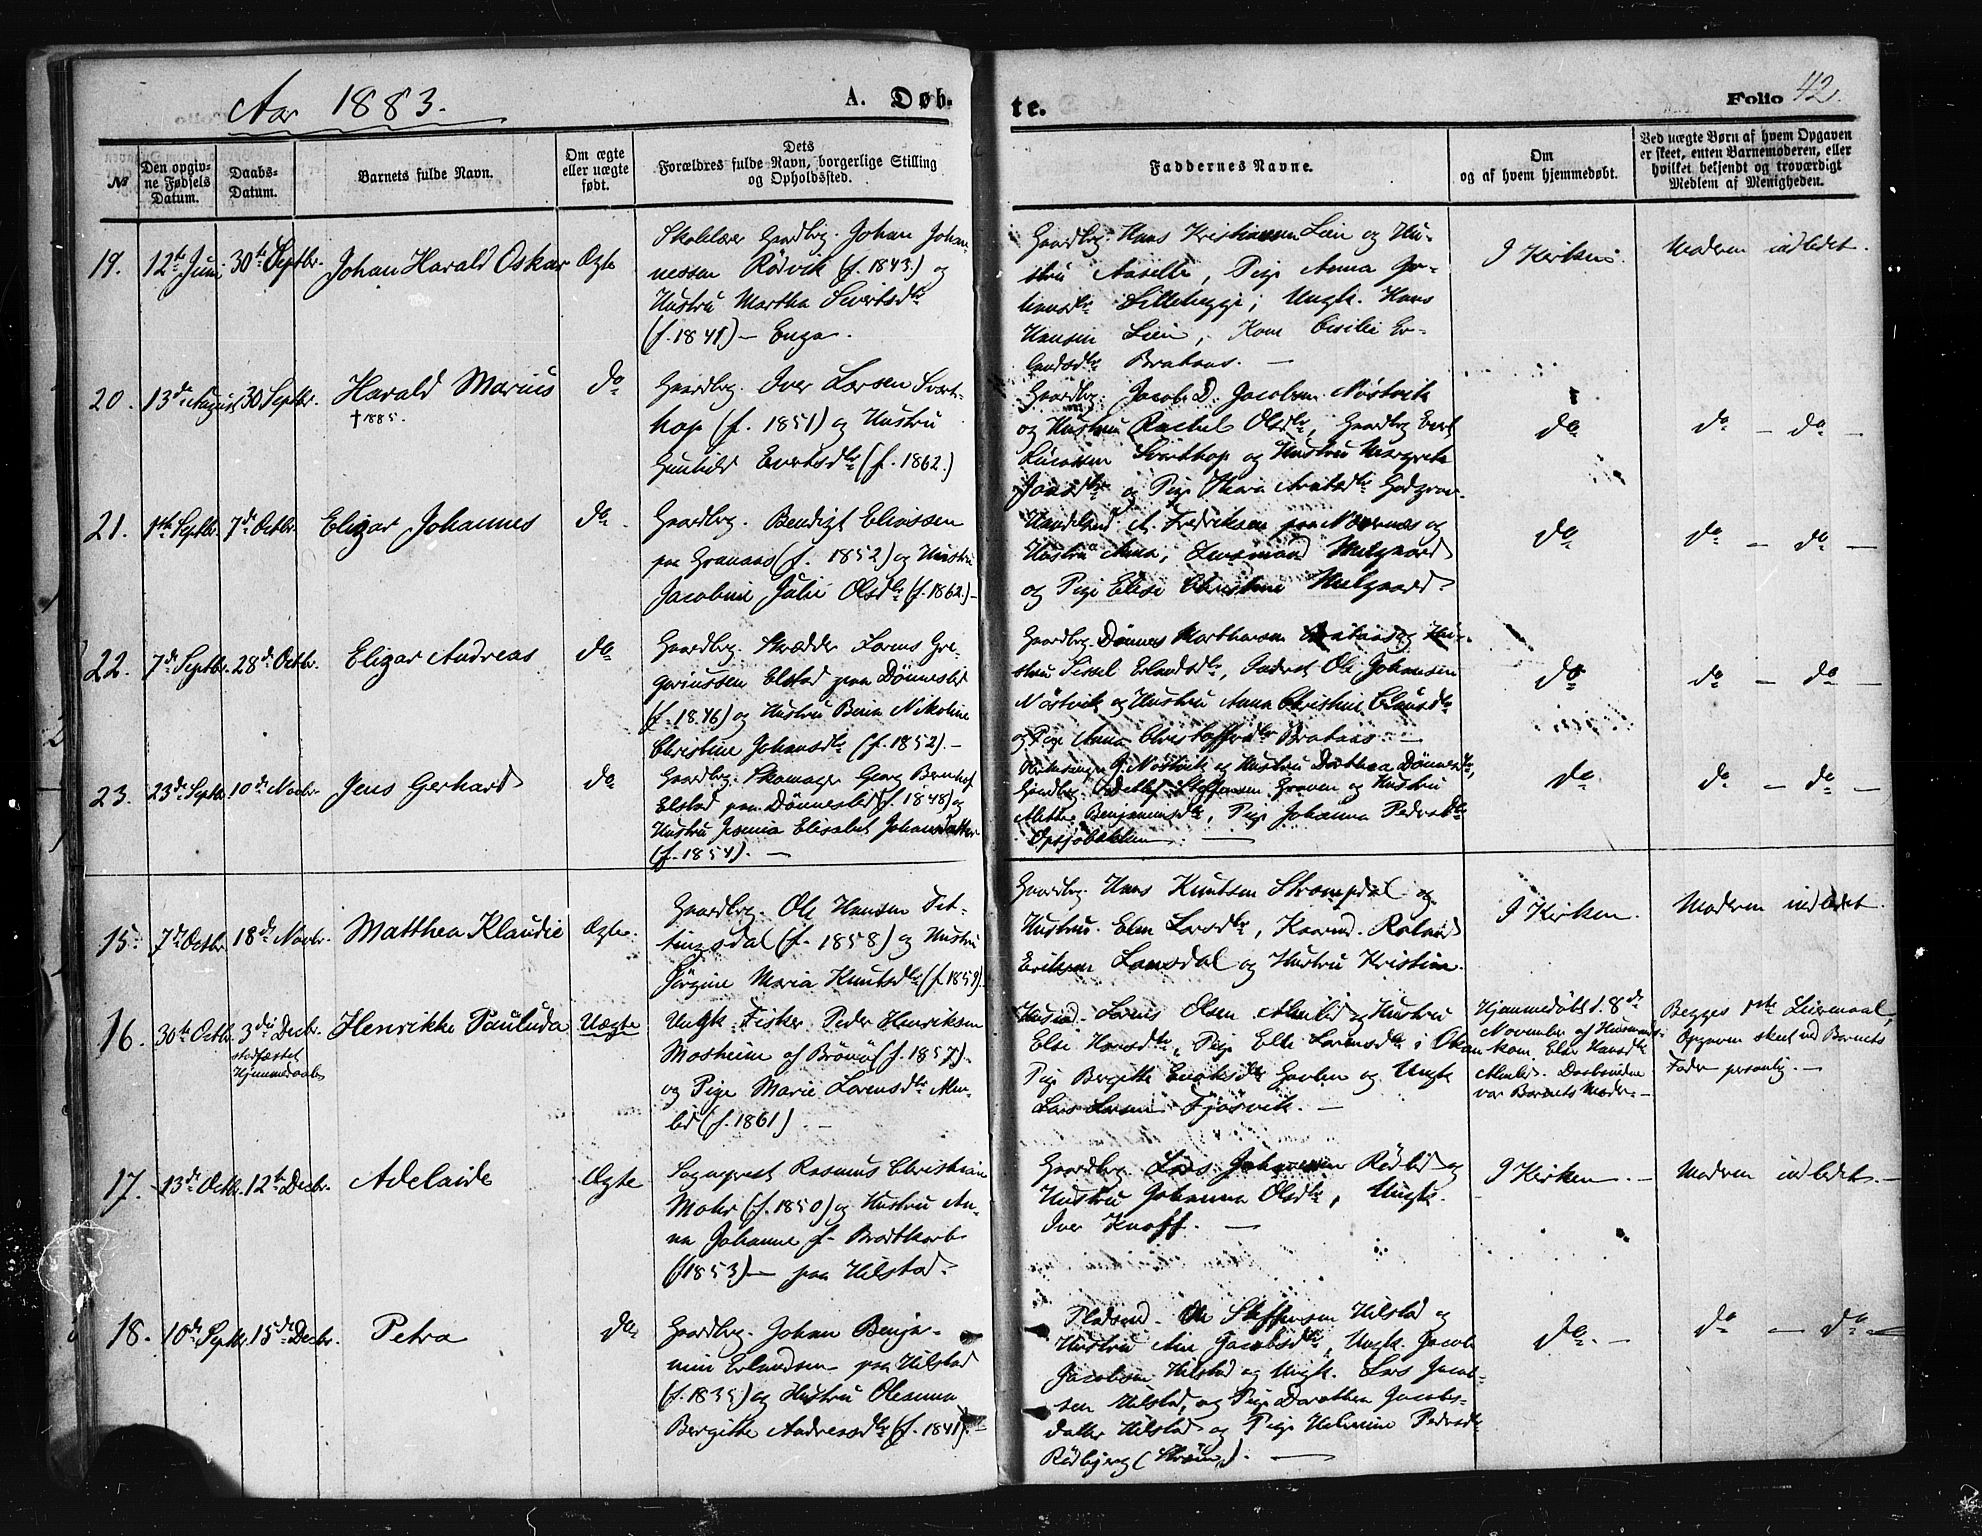 Aar 1883.
A. Døb-
te.
Folio 42.
№
Den opgiv-
ne Fødsels
Datum.
Daabs-
Datum.
Barnets fulde Navn.
Om ægte
eller uægte
født.
Dets
Forældres fulde Navn, borgerlige Stilling
og Opholdssted.
Faddernes Navne.
Om
og af hvem hjemmedøbt.
Ved uægte Børn af hvem Opgaven
er skeet, enten Barnemoderen, eller
hvilket bekjendt og troværdigt
Medlem af Menigheden.
19. 12te Juni 30te Septbr. Johan Harald Oskar Ægte
Skolelærer Gaardbrg. Johan Johan-
nessen Rødvik (f. 1843.) og
Hustru Martha Sivertsdtr
(f. 1841) – Enga.
Gaardbrg. Hans Kristiansen Lien og Hu-
stru Pige Anna Jo-
hansdtr Lillehegge; Ungk. Hans
Hansen Lien, Kone Cecilie Er-
lendsdtr Brataas. –
I Kirken.
Modren indledet.
20. 13de August 30 Septbr. Harald Marius do
† 1885.
Gaardbrg. Iver Larsen Svart-
hop (f. 1851) og Hustru
Gunhild Evertsdtr (f. 1862.)
Gaardbrg. Jacob D. Jacobsen Nøstvik
og Hustru Rachel Olsdtr, Gaardbrg Evert
Svarthop og Hustru Margrete
Jonsdtr og Pige
do
do – do –
21. 1ste Septbr. 7de Octbr. Elizar Johannes do.
Gaardbrg. Bendigt Eliassen
paa Granaas (f. 1852) og Hustru
Jacobine Julie Olsdtr (f. 1862.) –
A. Fredriksen paa Næsnæs og
Hustru Anna,
og Pige Elise Christine
do
do – do –
22. 7de Septbr. 28de Octbr. Elizar Andreas do
Gaardbrg. Skrædder Lorens Gre-
goriussen Elstad paa Dønneslid
(f. 1846) og Hustru Berit Nikoline
Christine Johansdtr (f. 1852). –
Gaardbrg. Dønnes Brataas og Hu-
stru Sissel Erlandsdtr, Ole Johansen
Nøstvik og Hustru Anna Christine Clausdtr
og Pige Anna Christoffersdtr Brataas –
do
do – do –
23. 23de Septbr. 10de Novbr. Jens Gerhard do
Gaardbrg. Skomager Georg Bernhof
Elstad paa Dønneslid (f. 1848) og
Hustru Elisabet Johansdatter
(f. 1854). –
Kirkesanger J. Nøstvik og Hustru Dorthea Dønnesdtr,
Gaardbrg. Steffensen Graven og Hustru
Mette Benjaminsdtr, Pige Johanna Pedersdtr
do.
do – do –
15. 7de Octbr. 18de Novbr. Matthea Klaudie Ægte.
Gaardbrg. Ole Hansen Fet-
tingsdal (f. 1858) og Hustru
Jørgine Maria Knutsdtr (f. 1859)
Gaardbrg. Hans Knutsen Strompdal og
Hustru Elen Larsdtr,
Eriksen Lansdal og Hustru Kristine.
I Kirken.
Modren indledet.
16. 30te Octbr. 3die Decbr. Henrikke Pauluda Uægte
stadfæstet
Hjemmedaab
Ungk. Fisker Peder Henriksen
Mosheim af Brønø (f. 1857).
og Pige Marie Lorensdtr Alm-
lid (f. 1861)
Husmd. Lorens Olsen Almlid og Hustru
Else Hansdtr, Pige Else Lorensdtr i
Pige Bergitte og Ungk.
Lars Fjøsvik. –
Hjemmedøbt d. 8de
November af Husmands-
kone. Else Hansdtr
Almlid.
var Barnets Moder –
Begges 1ste Leiermaal,
Opgaven skeet ved Barnets
Fader personlig. –
17. 13de Octbr. 12te Decbr. Adelaide Ægte
Sogneprest Rasmus Christian
Mohr (f. 1850) og Hustru An-
na Johanne f. Brodtkorb
(1853) – paa Vilstad.
Gaardbrg. Lars Johannesen Rødlid og
Hustru Johanna Olsdtr, Ungk.
Iver Knoff. –
I Kirken. –
Modren indledet. –
18. 10de Septbr. 15de Decbr. Petra do.
Gaardbrg. Johan Benja-
min Erlandsen paa Vilstad
(f. 1835) og Hustru Oleanna
Bergitte Andreasdtr (f. 1841) –
Pladsmd. Ole Steffensen Vilstad og
Hustru Ane Jacobsdtr, Ungk. Jacob
Jacobsen Vilstad og Ungk. Lars Jacob-
sen Vilstad, og Pige Dorothea Jacobs-
datter Vilstad og Pige Pedersdtr
Rødbjerg (Strøm.). –
do. –
do – do –